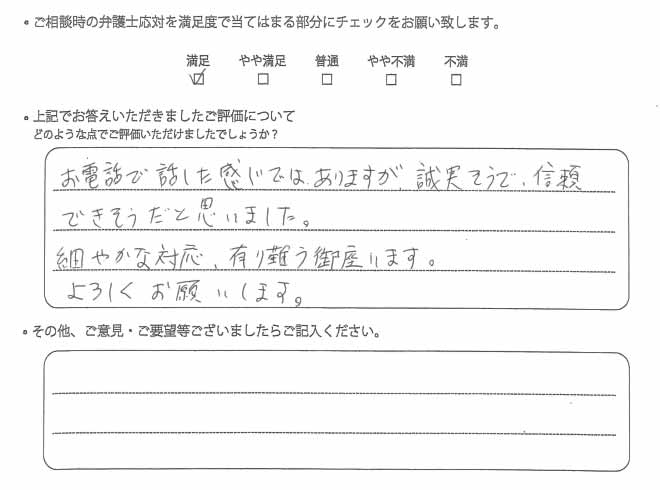 ・ご相談時の弁護士応対を満足度で当てはまる部分にチェックをお願い致します。
満足 やや満足 普通 やや不満 不満
☑ □ □ □ □
・上記でお答えいただきましたご評価について
どのような点でご評価いただけましたでしょうか？
お電話で話した感じではありますが、誠実そうで、信頼
できそうだと思いました。
細やかな対応、有り難う御座います。
よろしくお願いします。
・その他、ご意見・ご要望等ございましたらご記入ください。